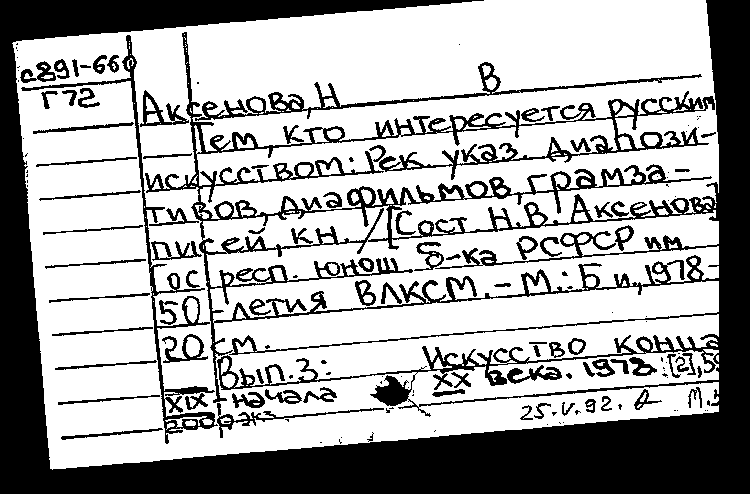 а891-660
Г72
Аксенова, Н В
Тем, кто интересуется русским
искусством: Рек. указ. диапози-
тивов, диафильмов, грамза-
писей, кн. / [Сост. Н.В. Аксенова]
Гос респ. юнош. б-ка РСФСР им.
50-летия ВЛКСМ. - М.: Б и., 1978-
20 см.
Вып. 3: Искусство конца
XIX - начала XX века. 1978. [2], 59
2000 экз.
25.V.92.